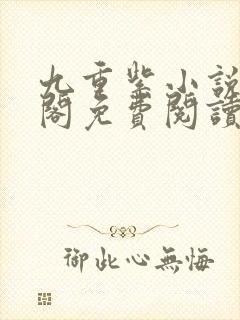 九重紫小說
閣免費閱讀
御此心無悔